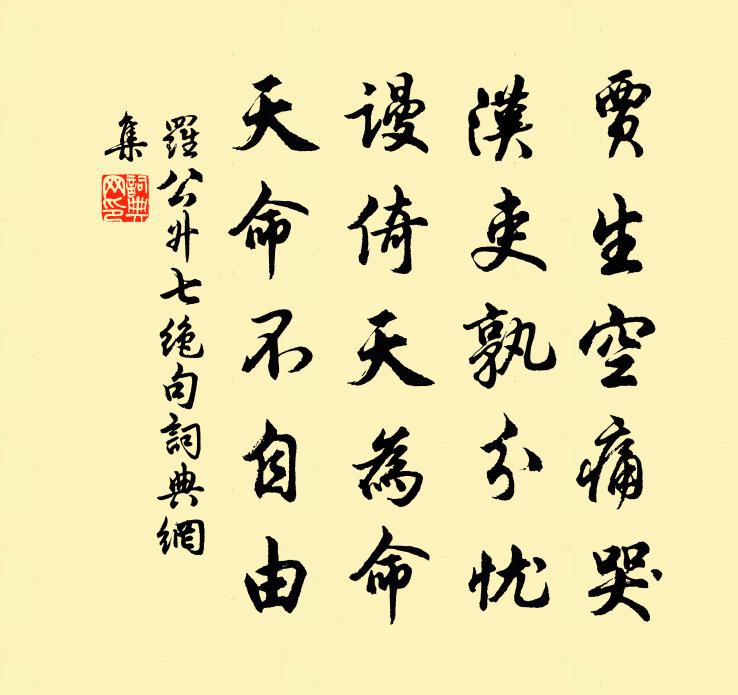 賈生空痛哭
漢吏孰分忧
謾倚天為命
天命不自由
羅公升七絶句詞典網
集
詞典
网印